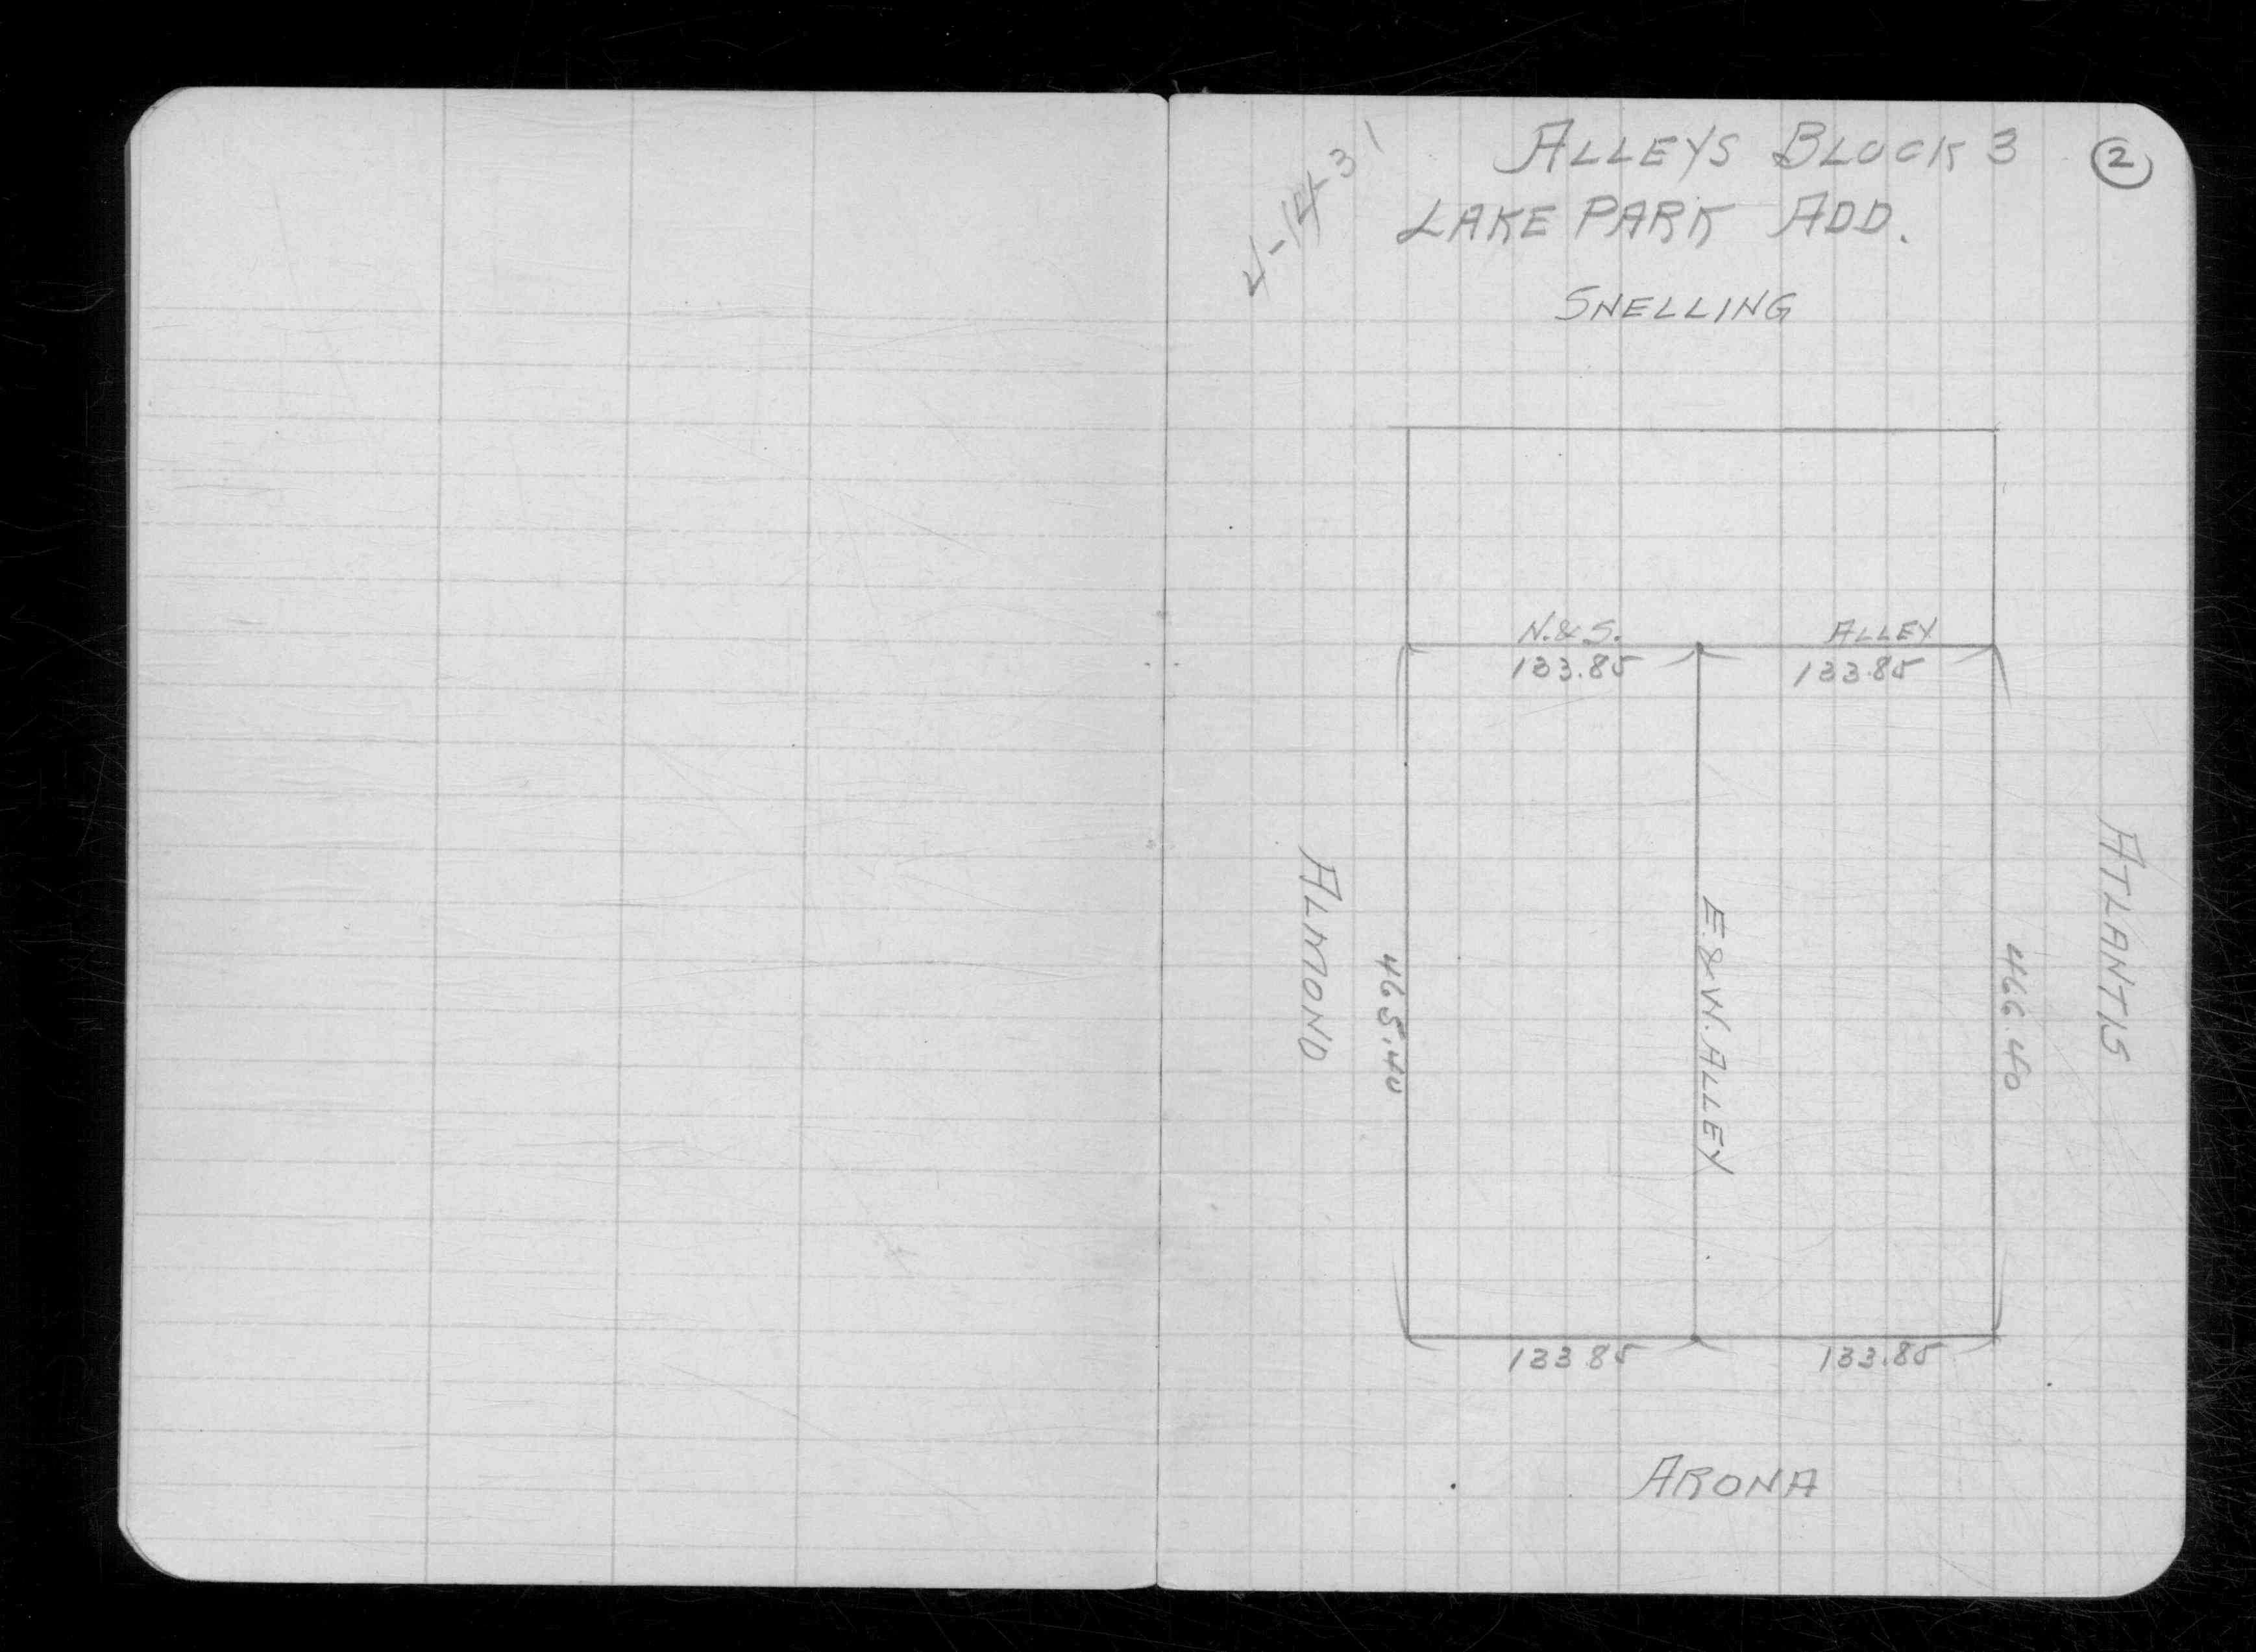 4-14-31
ALLEYS BLOCK 3
2
LAKE PARK ADD.
SNELLING
N.&S. ALLEY
133.85 133.85
ALMOND
465.40
E.&W. ALLEY
466.40
ATLANTIS
133.85 133.85
ARONA